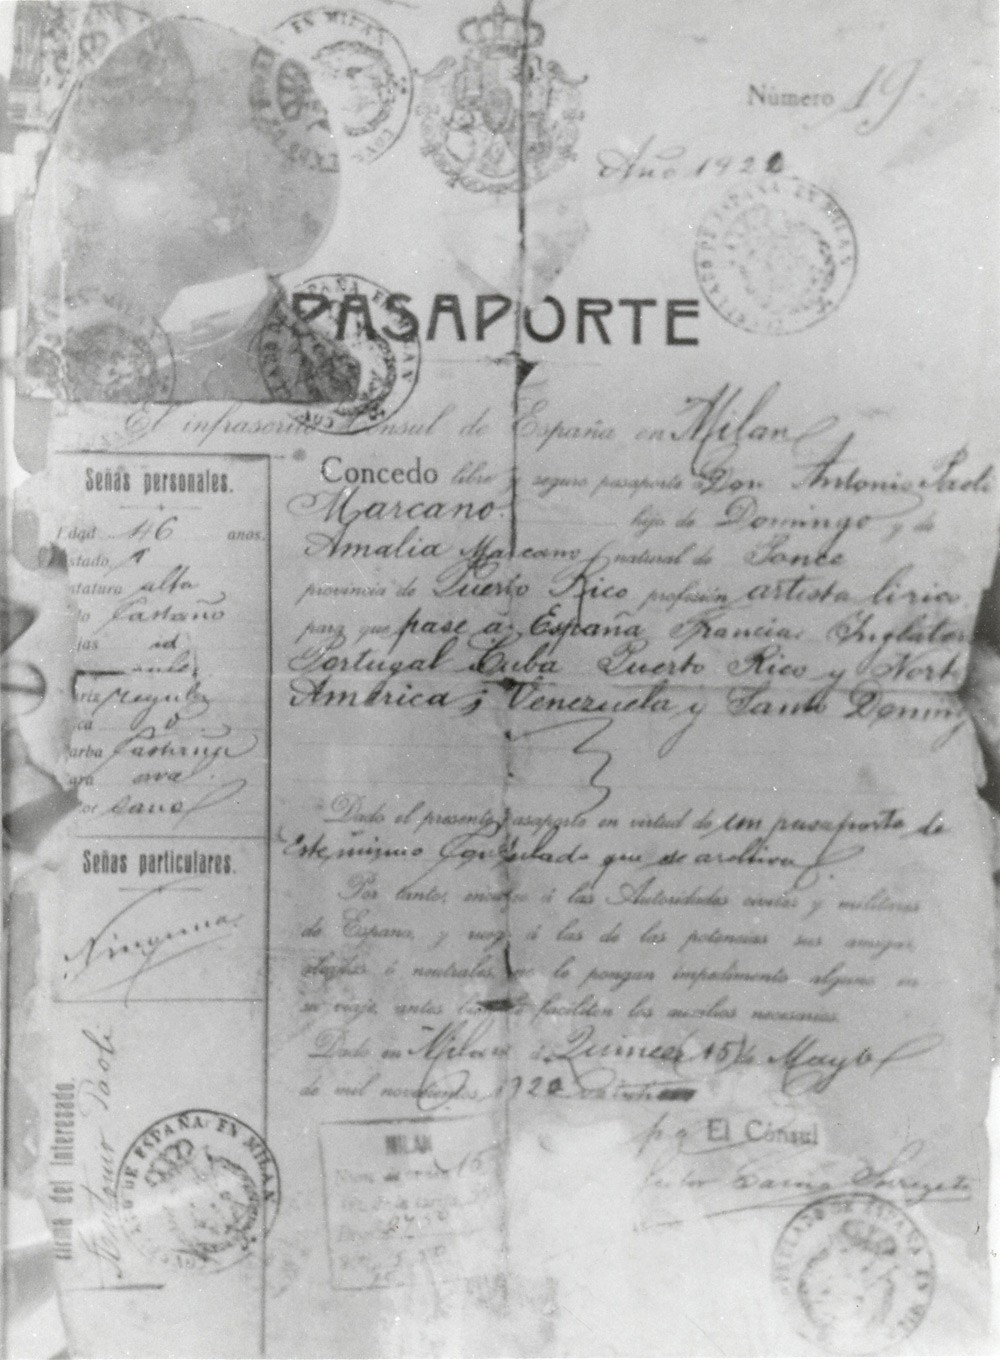 Número 19.
Año 192
CONSULADO DE ESPAÑA EN MILAN
PASAPORTE
El infrascrito Consul de España en Milan
Concedo libre y seguro pasaporte a Don Antonio Paoli
Marcano. hijo de Domingo y de
Amalia Marcano natural de Ponce
provincia de Puerto Rico profesión artista lirico
para que pase á España Francia Inglater
Portugal Cuba Puerto Rico y Nort
América; Venezuela y Santo Doming
Dado el presente pasaporte en virtud de un pasaporte de
Este mismo Consulado que se archiva
Por tanto, encargo á las Autoridades civiles y militares
de España, y ruego á las de las potencias sus amigas,
aliadas ó neutrales, no le pongan impedimento alguno en
su viaje, antes bien le faciliten los auxilios necesarios.
Dado en Milan á Quince (15) de Mayo
de mil novecientos 1920
p. a. El Cónsul
Señas personales.
Edad 46 anos.
stado,
statura alta
lo Castaño
jas id
riz regular
ca
arba Castaña
ara oval
or sano
Señas particulares.
Ninguna
Firma del Interesado.
Antonio Paoli
CONSULADO DE ESPAÑA EN MILAN
MILAN
CONSULADO DE ESPAÑA EN MIL